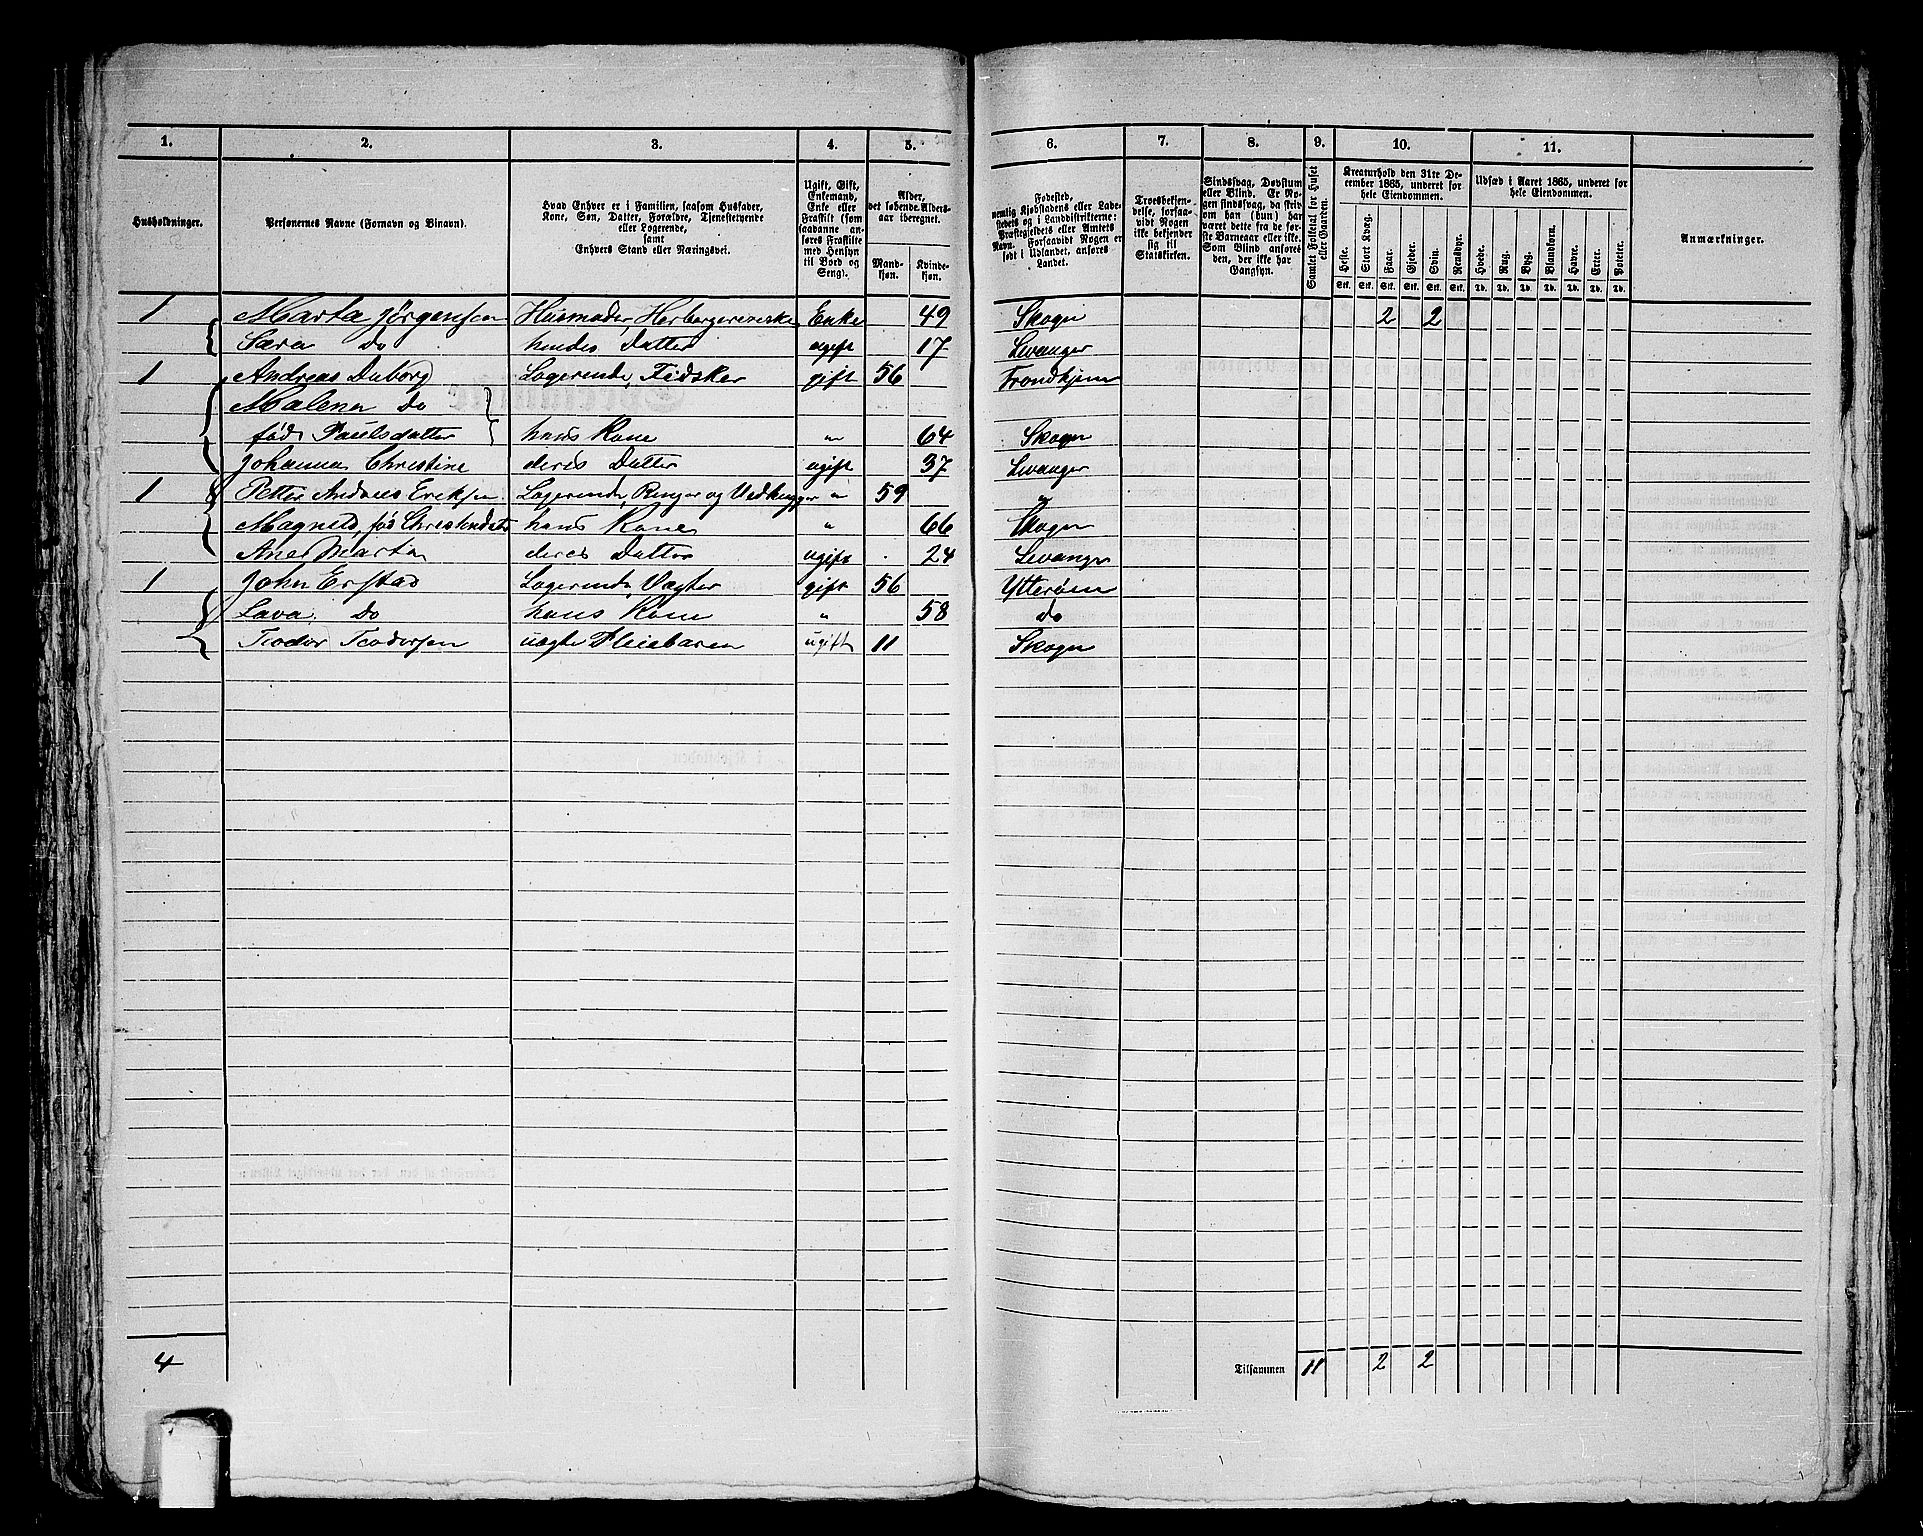 1. 2. 3. 4. 5. 6. 7. 8. 9. 10. 11.
Husholdninger.
Personernes Navne (Fornavn og Binavn).
Hvad Enhver er i Familien, saasom Husfader,
Kone, Søn, Datter, Forældre, Tjenestetyende
eller Logerende,
samt
Enhvers Stand eller Næringsvei.
Ugift, Gift,
Enkemand,
Enke eller
Fraskilt (som
saadanne an-
føres Fraskilte
med Hensyn
til Bord og
Seng).
Alder,
det løbende Alders-
aar iberegnet.
Mand-
kjøn.
Kvinde-
kjøn.
Fødested,
nemlig Kjøbstadens eller Lade-
stedets og i Landdistrikterne:
Præstegjeldets eller Amtets
Navn. Forsaavidt Nogen er
født i Udlandet, anføres
Landet.
Troesbekjen-
delse, forsaa-
vidt Nogen
ikke bekjender
sig til
Statskirken.
Sindssvag, Døvstum
eller Blind. Er No-
gen sindssvag, da skriv
om han (hun) har
været dette fra de før-
ste Barneaar eller ikke.
Som Blind anføres
den, der ikke har
Gangsyn.
Samlet Folketal for Huset
eller Gaarden.
Kreaturhold den 31te De-
cember 1865, underet for
hele Eiendommen.
Heste. Stort Kvæg. Faar. Gjeder. Svin. Rensdyr.
Stk. Stk. Stk. Stk. Stk. Stk.
Udsæd i Aaret 1865, underet for
hele Eiendommen.
Hvede. Rug. Byg. Blandkorn. Havre. Erter. Poteter.
Td. Td. Td. Td. Td. Td. Td.
Anmærkninger.
1 Marta Jørgensen Husmoder, Herbergereneske Enke 49 Skogn 2 2
Sara do hendes Datter ugift 17 Levanger
1 Andreas Duborg Logerende, Fidsker gift 56 Trondhjem
Malena do
føds Paulsdatter hans Kone " 64 Skogn
Johanna Christine deres Datter ugift 37 Levanger
1 Petter Andreas Eriksen Logerende, Ringer og Vedhugger " 59 "
Magnild, fød Christendatr hans Kone " 66 Skogn
Ane Martin deres Datter ugift 24 Levanger
1 John Erstad Logerende, Vægter gift 56 Ytterøen
Lava do hans Kone " 58 do
Teodor Teodorsen Pleiebaren ugift 11 Skogn
4 Tilsammen 11 2 2